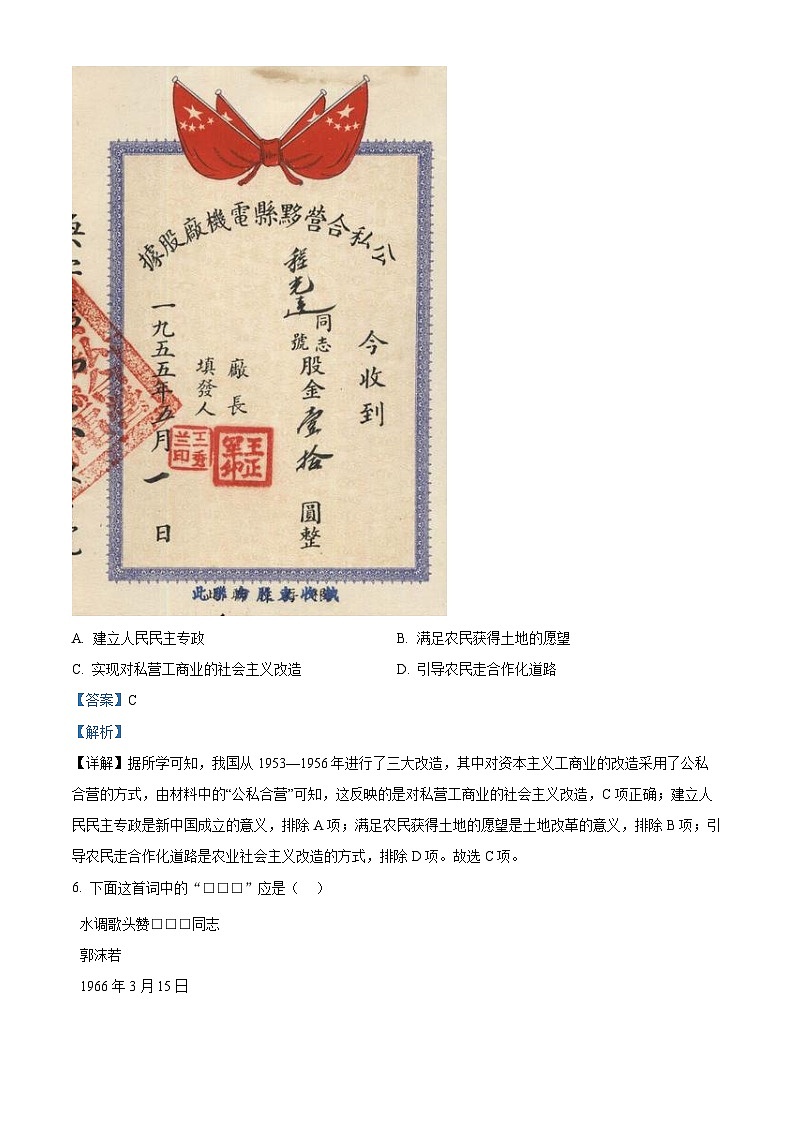 公私合營黟縣電機廠股據
今收到
程光達同志
號
股金壹拾圓整
廠長
填發人
王正
一九五五年五月一日
A. 建立人民民主专政
B. 满足农民获得土地的愿望
C. 实现对私营工商业的社会主义改造
D. 引导农民走合作化道路
【答案】C
【解析】
【详解】据所学可知，我国从 1953—1956 年进行了三大改造，其中对资本主义工商业的改造采用了公私
合营的方式，由材料中的“公私合营”可知，这反映的是对私营工商业的社会主义改造，C 项正确；建立人
民民主专政是新中国成立的意义，排除 A 项；满足农民获得土地的愿望是土地改革的意义，排除 B 项；引
导农民走合作化道路是农业社会主义改造的方式，排除 D 项。故选 C 项。
6. 下面这首词中的“□□□”应是（ ）
水调歌头赞□□□同志
郭沫若
1966 年 3 月 15 日